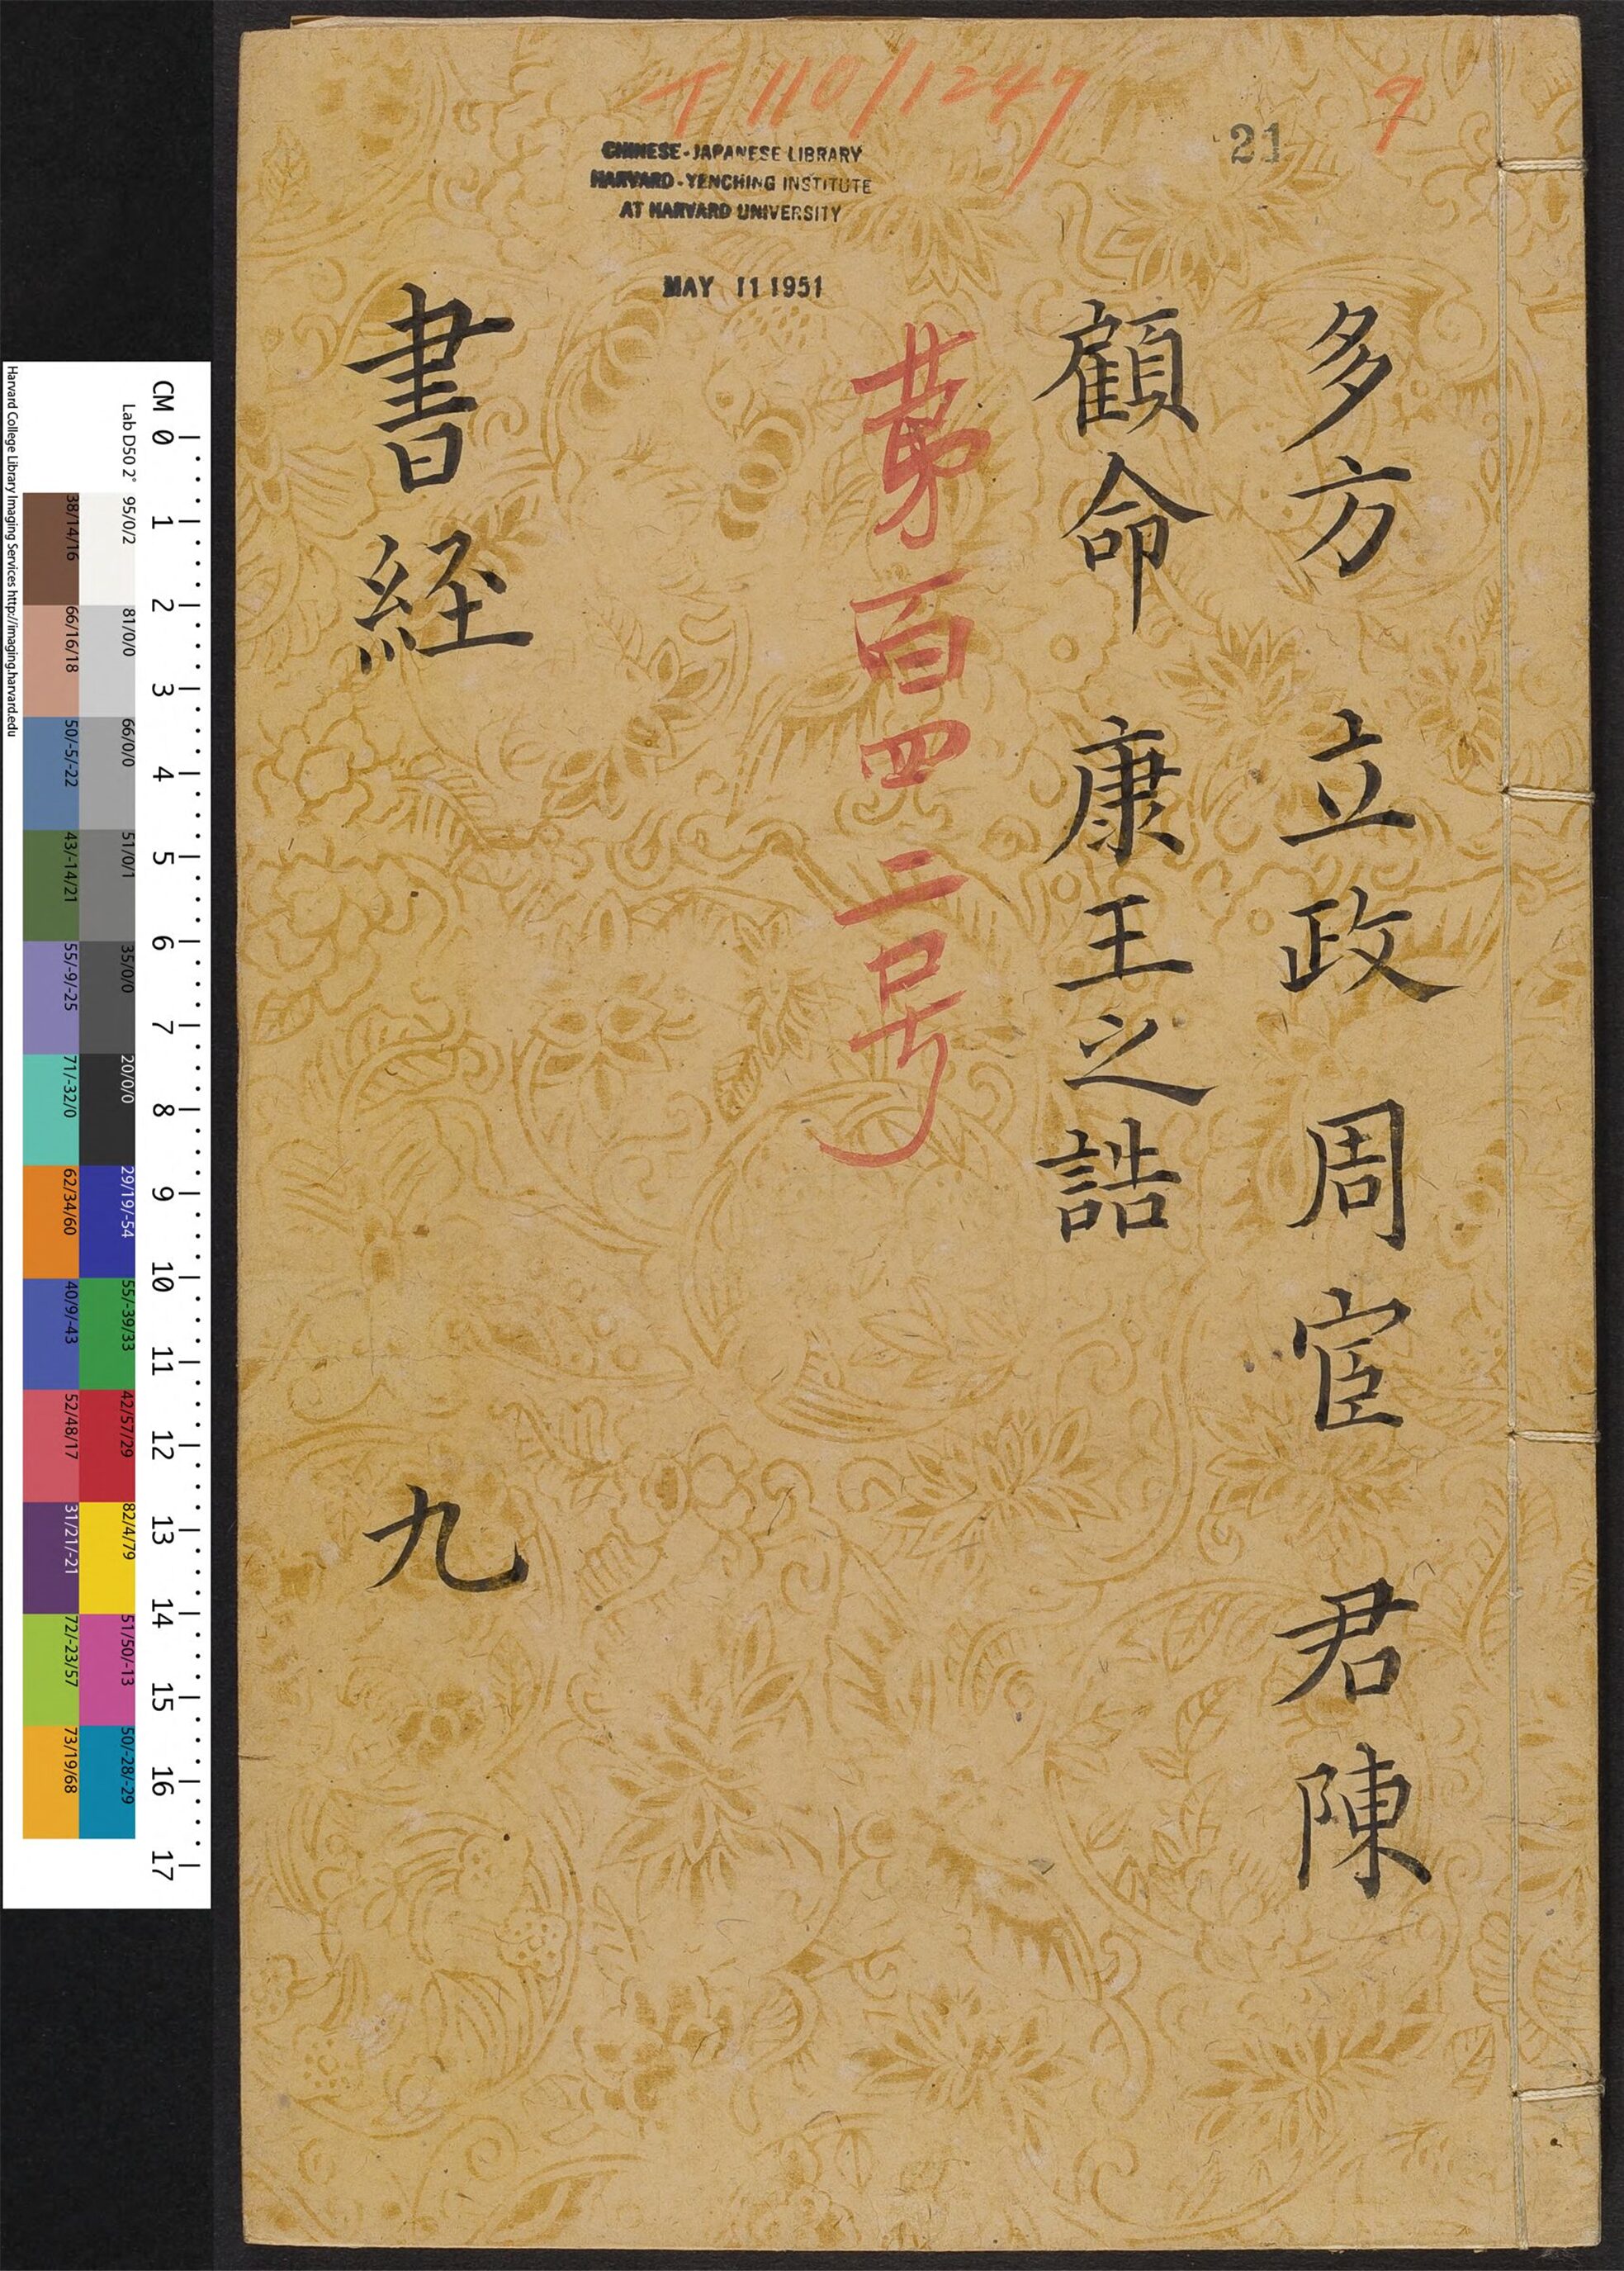 T 110/1247
9
21
CHINESE-JAPANESE LIBRARY
HARVARD-YENCHING INSTITUTE
AT HARVARD UNIVERSITY
MAY 11 1951
多方 立政 周宦 君陳
顧命 康王之誥
苐百四二号
書経 九
CM 0 1 2 3 4 5 6 7 8 9 10 11 12 13 14 15 16 17
Lab D50 2° 95/0/2 81/0/0 66/0/0 51/0/1 35/0/0 20/0/0 29/19/-54 55/-39/33 42/57/29 82/4/79 51/50/-13 50/-28/-29
38/14/16 66/16/18 50/-5/-22 43/-14/21 55/-9/-25 71/-32/0 62/34/60 40/9/-43 52/48/17 31/21/-21 72/-23/57 73/19/68
Harvard College Library Imaging Services http://imaging.harvard.edu